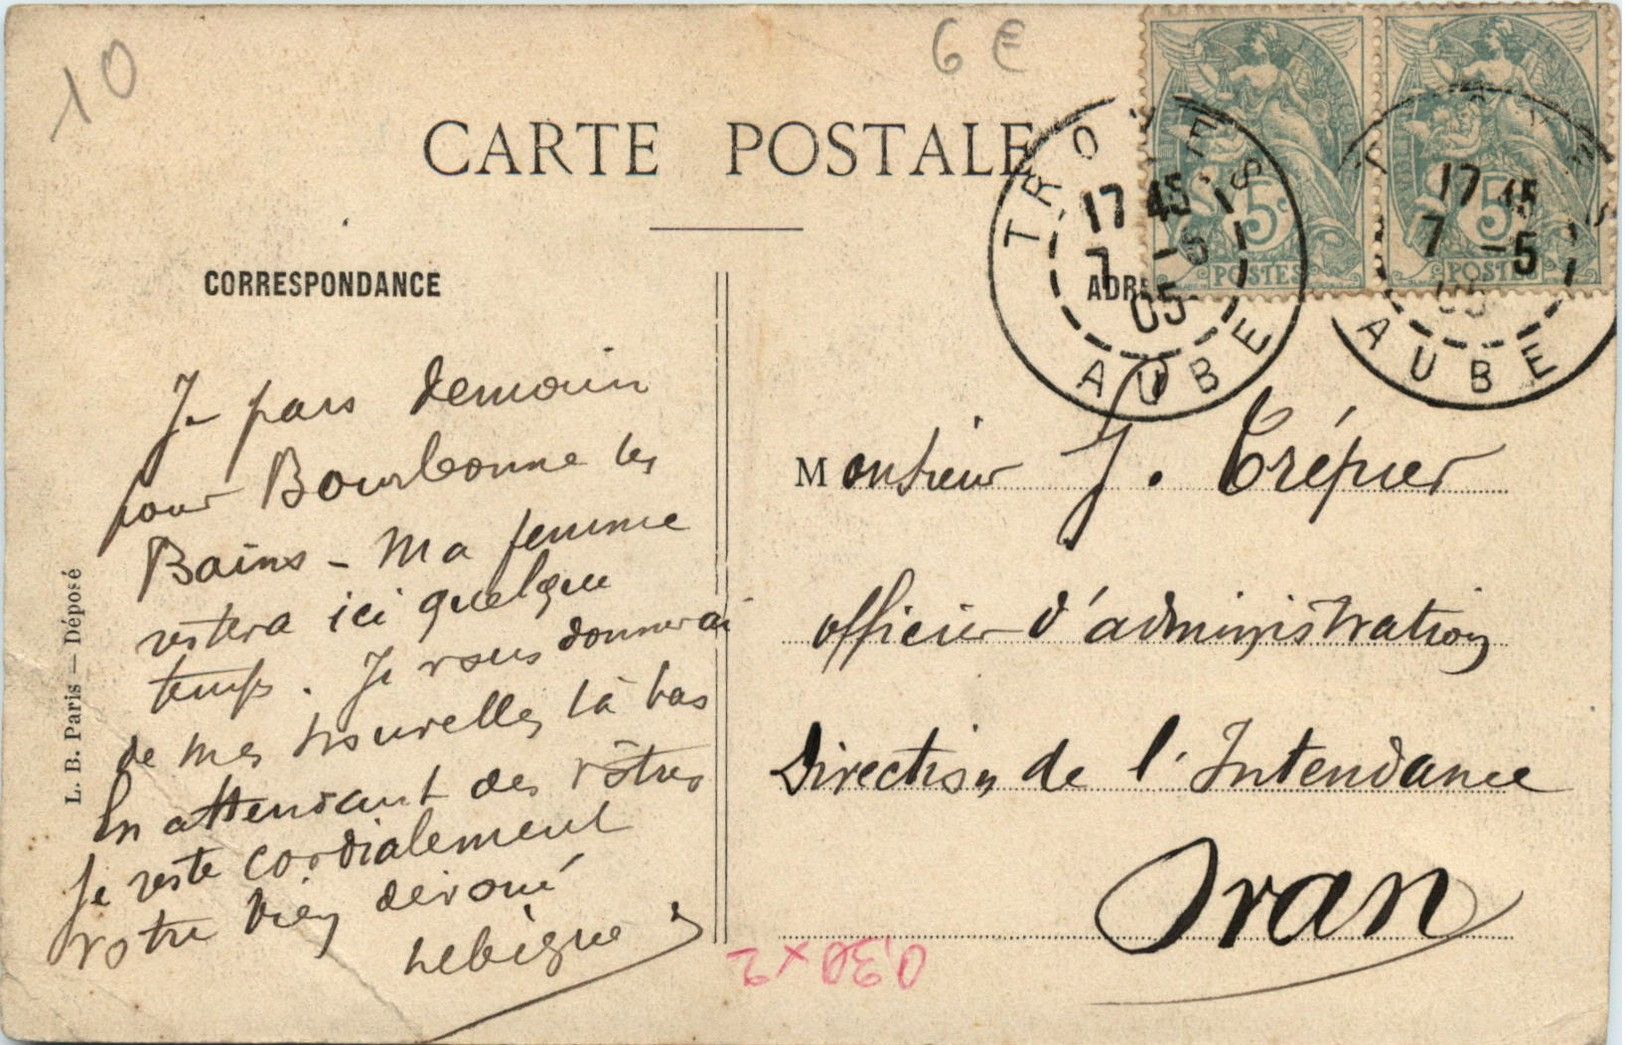 10
6 €
CARTE POSTALE
CORRESPONDANCE
ADRE
TROYES
17 45
7 -5
05
AUBE
5c
POSTES
17 45
7 -5
05
AUBE
5c
POSTES
Je pars demain
pour Bourbonne les
Bains - Ma femme
restera ici quelque
temps. Je vous donnerai
de mes nouvelles là bas
En attendant des vôtres
Je reste cordialement
votre bien dévoué
Lebigue
Monsieur J. Crépier
officier d'administration
Direction de l'Intendance
Oran
0,30 x 2
L. B. Paris — Déposé